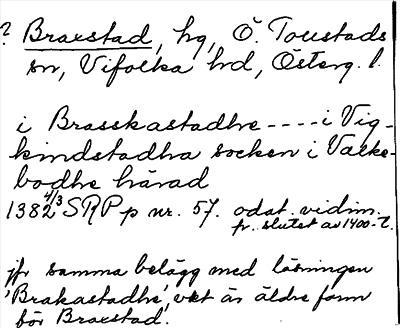 ? Braxstad, hg, Ö. Toustads
sn, Vifolka hd, Österg. l.
i Brasskastadhe ---- i Vig-
kindstadha socken i Valke-
bodhe härad
1382 4/3 SRP p nr. 57. odat. vidim.
fr. slutet av 1400-t.
jfr samma belägg med läsningen
'Brakastadhe', vket är äldre form
för Braxstad.